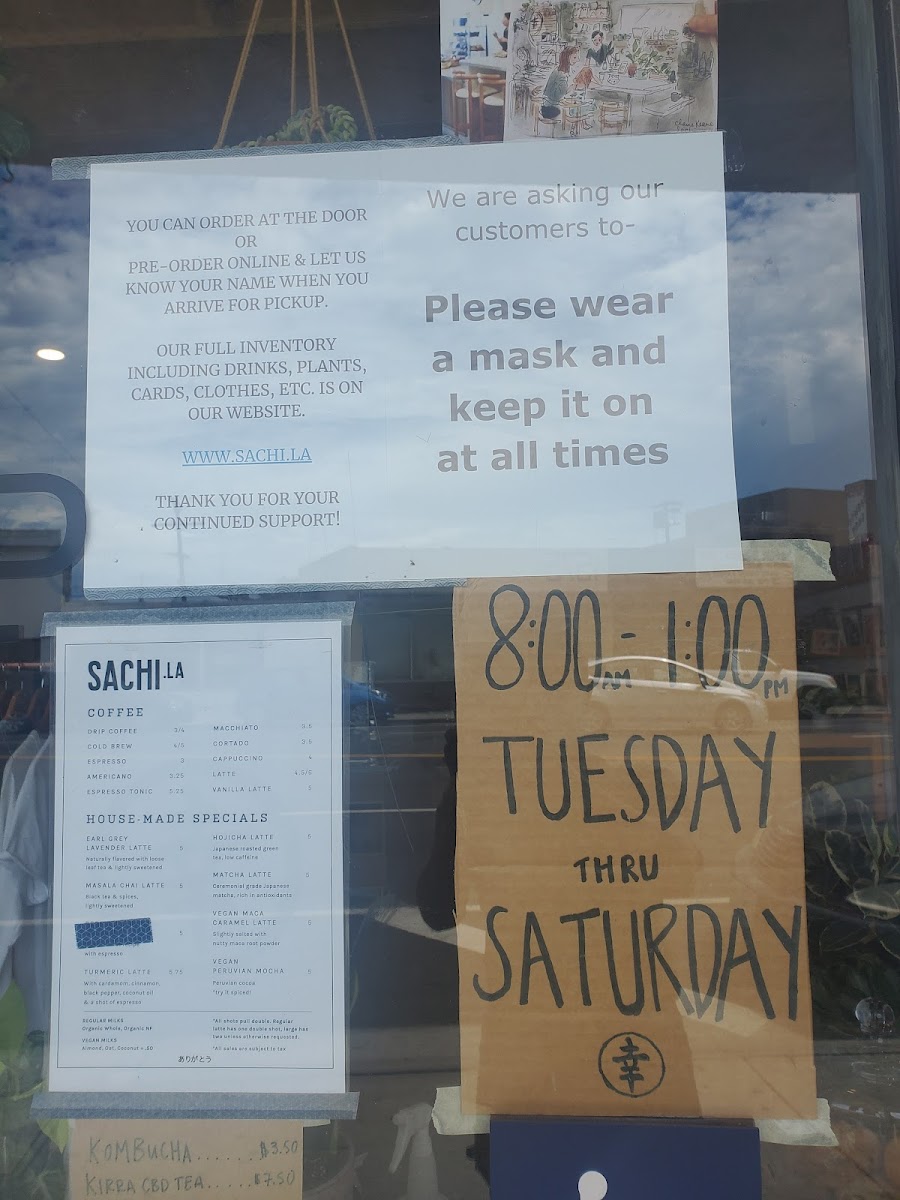 YOU CAN ORDER AT THE DOOR
OR
PRE-ORDER ONLINE & LET US
KNOW YOUR NAME WHEN YOU
ARRIVE FOR PICKUP.
OUR FULL INVENTORY
INCLUDING DRINKS, PLANTS,
CARDS, CLOTHES, ETC. IS ON
OUR WEBSITE.
WWW.SACHI.LA
THANK YOU FOR YOUR
CONTINUED SUPPORT!
We are asking our
customers to-
Please wear
a mask and
keep it on
at all times
SACHI.LA
COFFEE
DRIP COFFEE 3/4
COLD BREW 4/5
ESPRESSO 3
AMERICANO 3.25
ESPRESSO TONIC 5.25
MACCHIATO 3.5
CORTADO 3.5
CAPPUCCINO 4
LATTE 4.5/5
VANILLA LATTE 5
HOUSE-MADE SPECIALS
EARL GREY
LAVENDER LATTE 5
Naturally flavored with loose
leaf tea & lightly sweetened
MASALA CHAI LATTE 5
Black tea & spices,
lightly sweetened
5
with espresso
TURMERIC LATTE 5.75
With cardamom, cinnamon,
black pepper, coconut oil
& a shot of espresso
HOJICHA LATTE 5
Japanese roasted green
tea, low caffeine
MATCHA LATTE 5
Ceremonial grade Japanese
matcha, rich in antioxidants
VEGAN MACA
CARAMEL LATTE 5
Slightly salted with
nutty maca root powder
VEGAN
PERUVIAN MOCHA 5
Peruvian cocoa
*try it spiced!
REGULAR MILKS
Organic Whole, Organic NF
VEGAN MILKS
Almond, Oat, Coconut +.50
*All shots pull double. Regular
latte has one double shot, large has
two unless otherwise requested.
*All sales are subject to tax
ありがとう
8:00AM - 1:00PM
TUESDAY
THRU
SATURDAY
幸
KOMBUCHA......$3.50
KIRRA CBD TEA.....$7.50